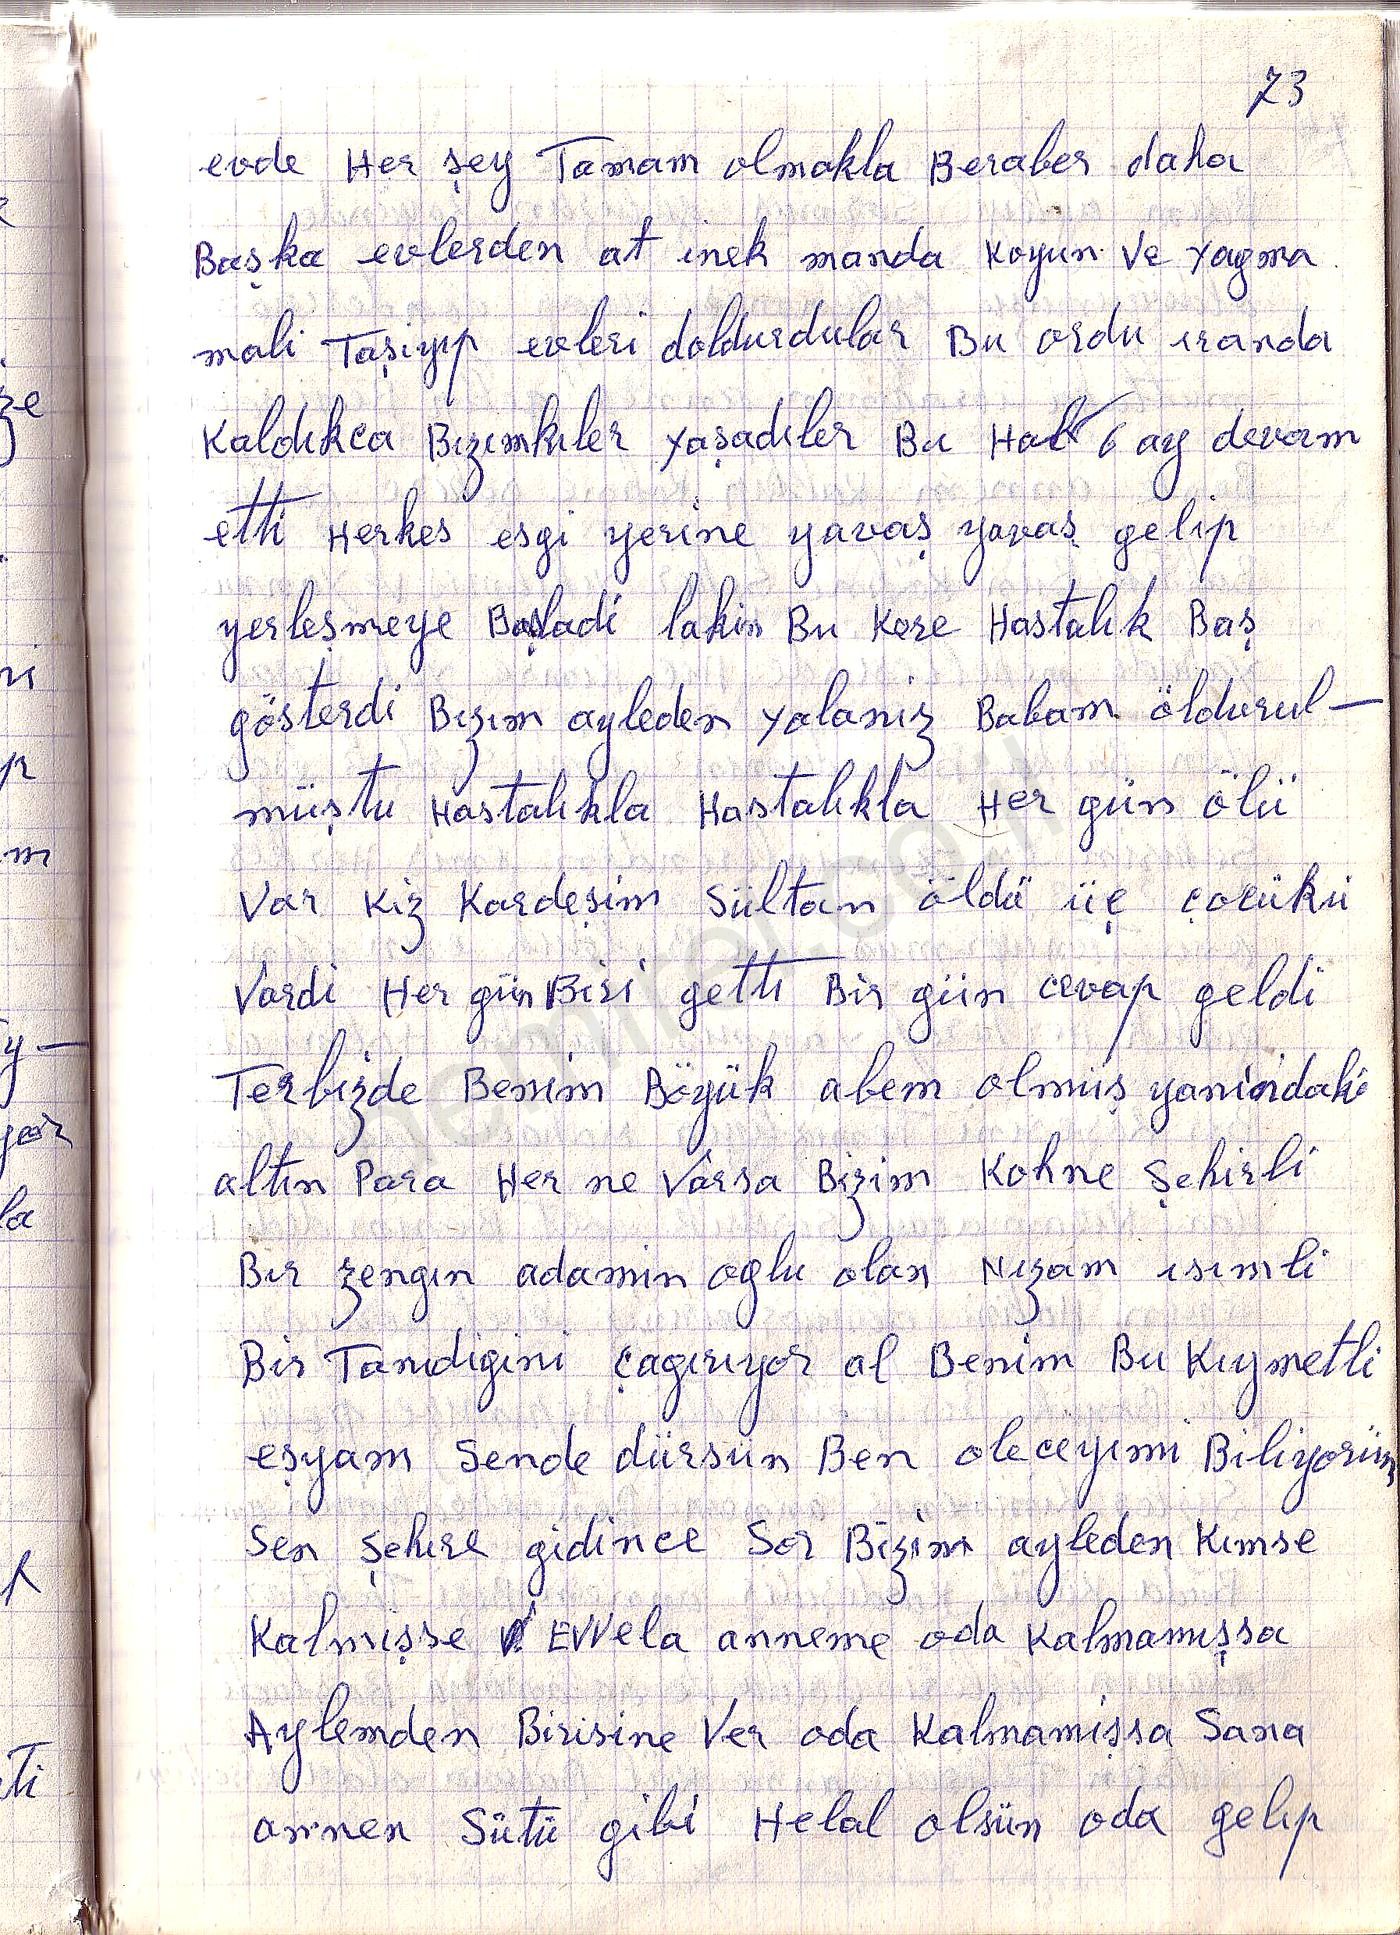 73
evde Her şey Tamam olmakla Beraber daha
Başka evlerden at inek manda Koyun Ve Yagma
mali Taşiyıp evleri doldurdular Bu ordu ıranda
Kaldıkca Bızımkıler yaşadıler Bu Hal 6 ay devam
etti Herkes esgi yerine yavaş yavaş gelip
yerleşmeye Başladi lakin Bu Kere Hastalık Baş
gösterdi Bızım ayleden yalaniz Babam öldurul-
müştu Hastalıkla Hastalıkla Her gün ölü
Var Kiz Kardeşim Sültan öldü üç çocükü
Vardi Her gün Biri gettı Bir gün cevap geldi
Terbizde Benim Böyük abem olmüş yanindaki
altın Para Her ne Varsa Bizim Kohne Şehirli
Bır zengın adamin oglu olan Nızam ısımli
Bir Tanıdigini çagırıyor al Benim Bu Kıymetli
eşyam Sende dürsün Ben oleceyımi Biliyorüm
Sen Şehıre gidince Sor Bizim ayleden Kımse
Kalmışse EVVela anneme oda Kalmamışsa
Aylemden Birisine Ver oda Kalmamişsa Sana
annen Sütü gibi Helal olsün oda gelıp